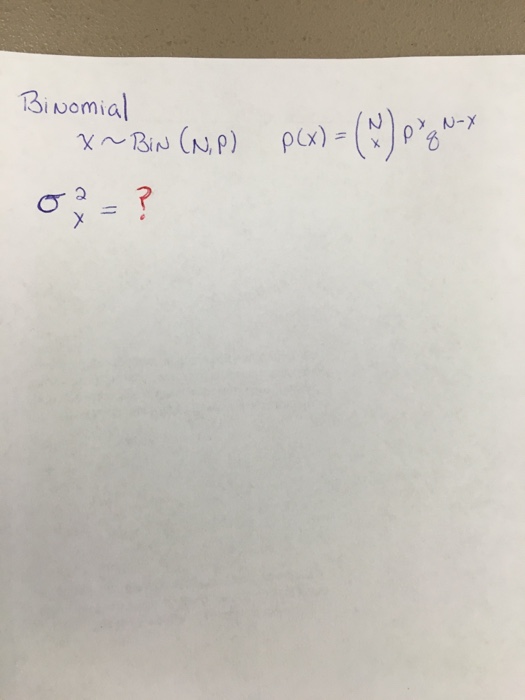 Binomial
X ~ Bin (N,P) p(x) = (N x) p^x q^N-x
σ²x = ?